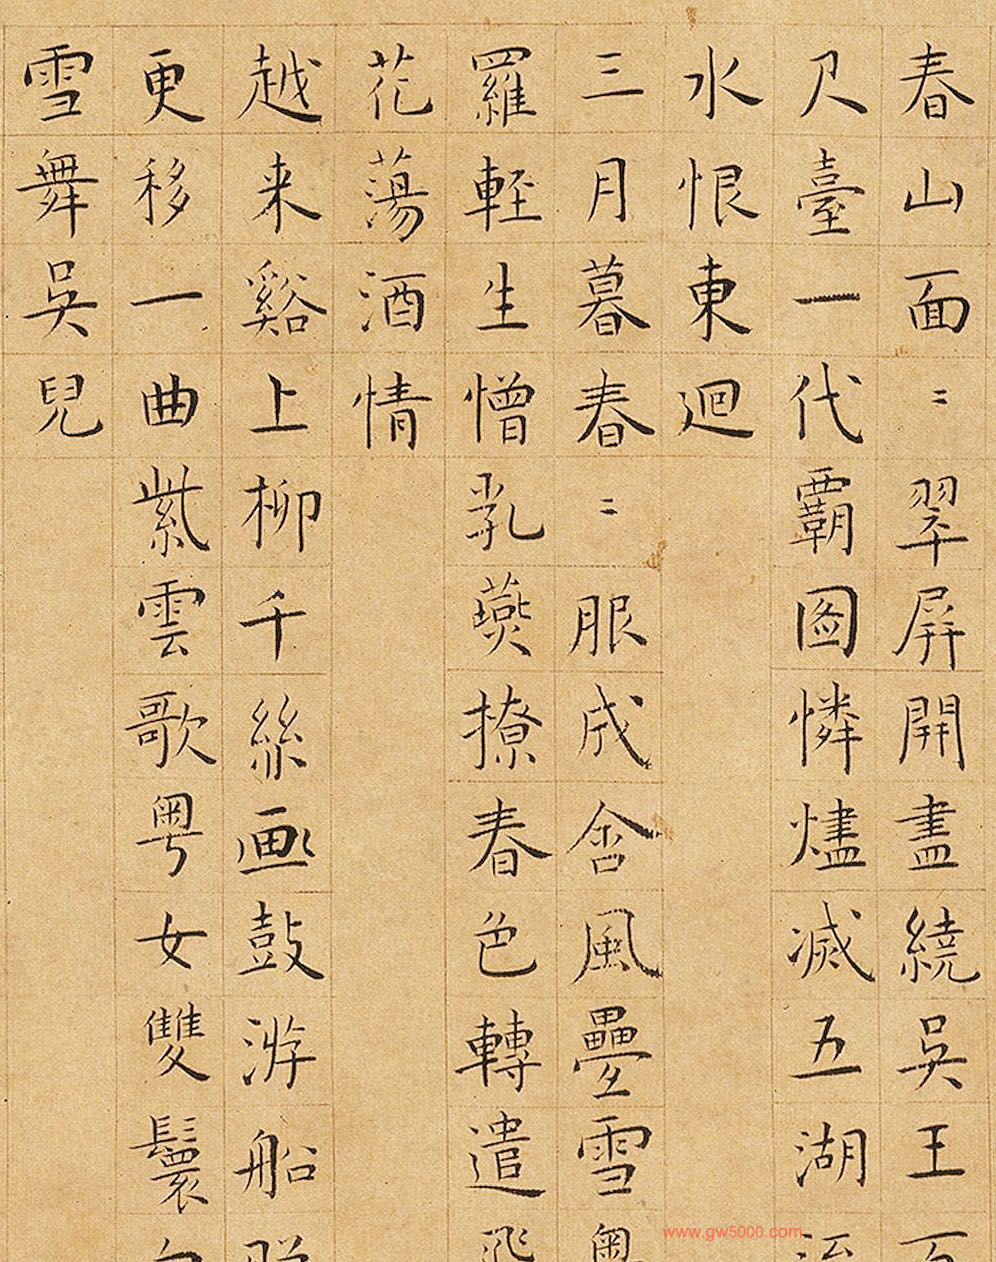 春山面〻翠屏開盡繞吳王百
尺臺一代覇圖憐燼滅五湖流
水恨東迴
三月暮春〻服成含風疊雪粤
羅軽生憎乳燕撩春色轉遣飛
花蕩酒情
越来谿上柳千絲画鼓游船
更移一曲紫雲歌粤女雙鬟
雪舞吳兒
www.gw5000.com